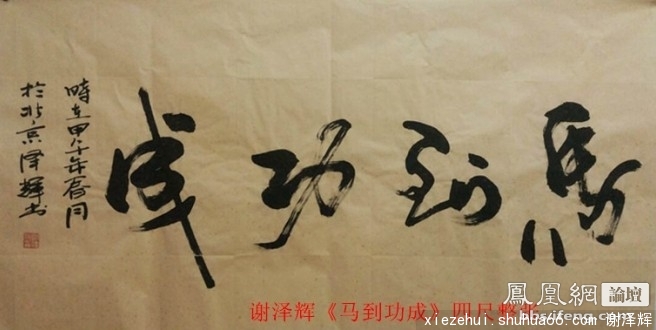 馬到功成
時在甲午年春月
於北京澤輝书
谢泽辉《马到功成》四尺整张
鳳凰網 論壇
bbs.ifeng.com
xiezehui.shuhua66.com 谢泽辉